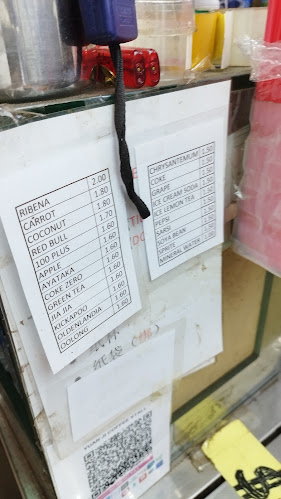 RIBENA 2.00
CARROT 1.80
COCONUT 1.80
RED BULL 1.70
100 PLUS 1.60
APPLE 1.60
AYATAKA 1.60
COKE ZERO 1.60
GREEN TEA 1.60
JIA JIA 1.60
KICKAPOO 1.60
OLDENLANDIA 1.60
OOLONG 1.60
CHRYSANTEMUM 1.50
COKE 1.50
GRAPE 1.50
ICE CREAM SODA 1.50
ICE LEMON TEA 1.50
PEPSI 1.50
SARSI 1.50
SOYA BEAN 1.50
SPRITE 1.50
MINERAL WATER 1.50
纸袋
COFFEE STALL